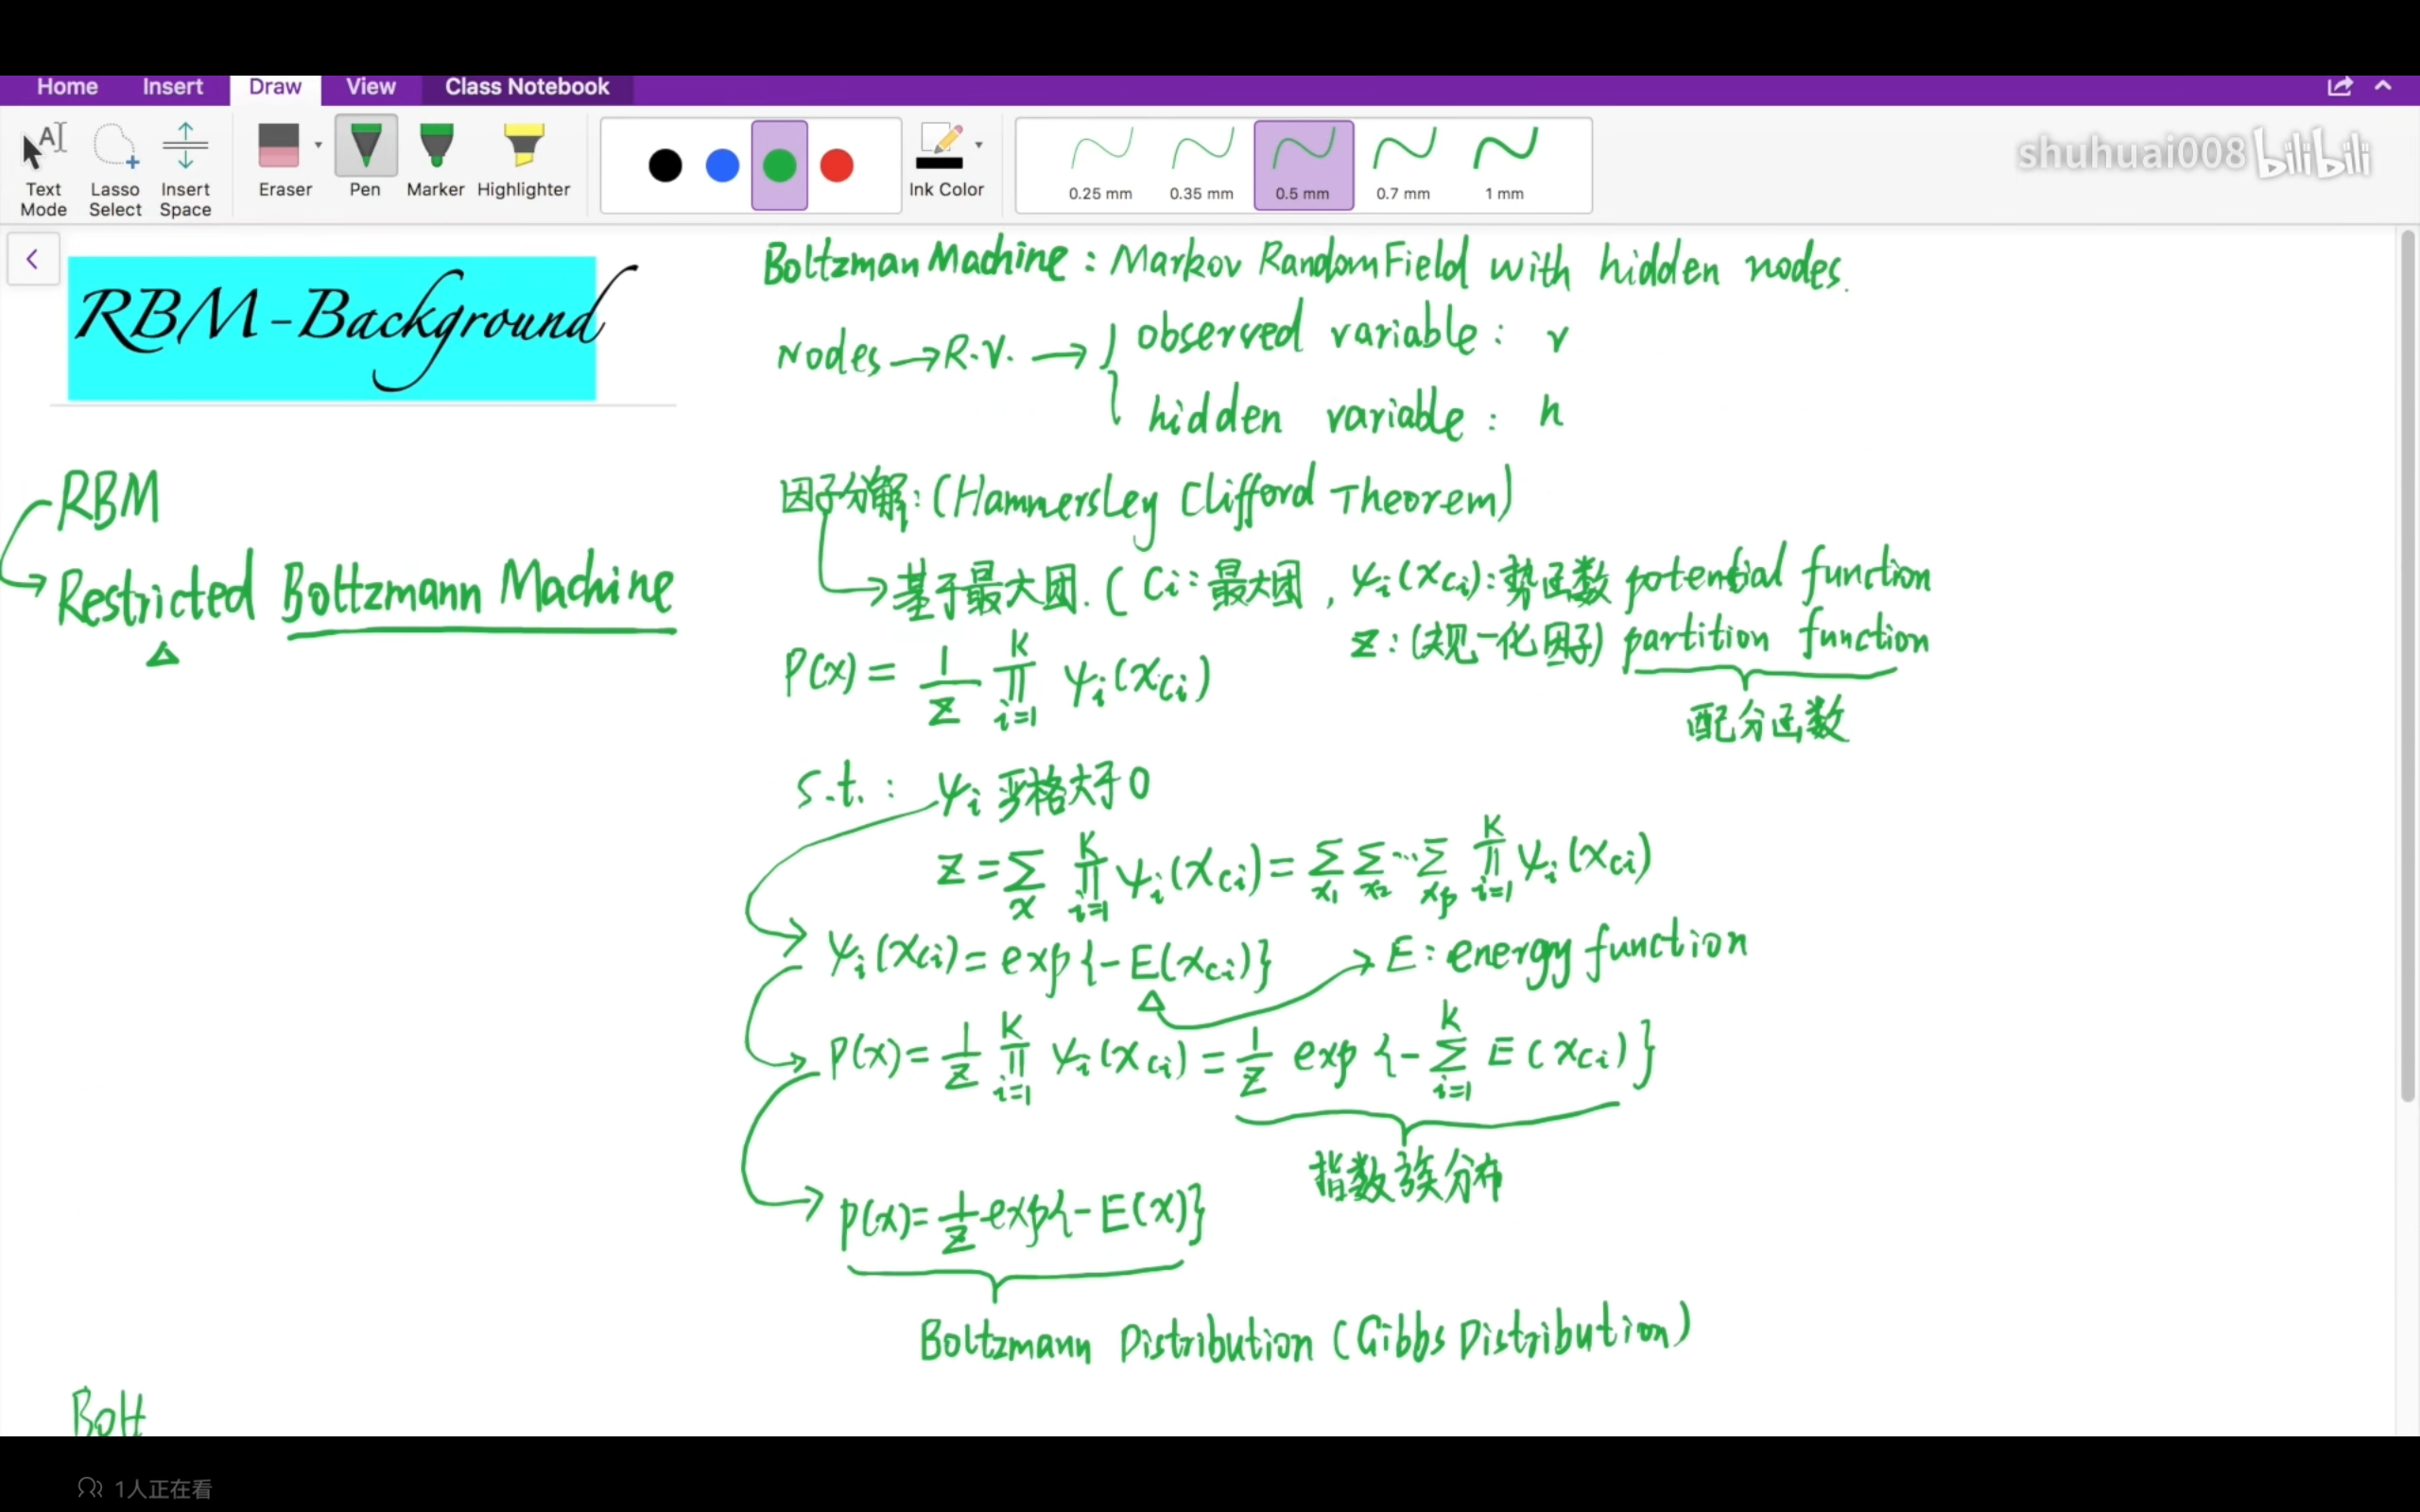 Home Insert Draw View Class Notebook
Text Mode Lasso Select Insert Space Eraser Pen Marker Highlighter Ink Color 0.25 mm 0.35 mm 0.5 mm 0.7 mm 1 mm
shuhuai008 bilibili
RBM-Background
RBM
Restricted Boltzmann Machine
Boltzman Machine : Markov Random Field with hidden nodes.
Nodes → R.V. → { observed variable : v
hidden variable : h
因子分解: (Hammersley Clifford Theorem)
→ 基于最大团. ( Ci : 最大团 , ψi(xCi) : 势函数 potential function
Z : (规一化因子) partition function
配分函数
P(x) = 1/Z ∏_{i=1}^{K} ψi(xCi)
s.t. : ψi 严格大于0
Z = ∑_x ∏_{i=1}^{K} ψi(xCi) = ∑_{x1} ∑_{x2} … ∑_{xp} ∏_{i=1}^{K} ψi(xCi)
ψi(xCi) = exp{-E(xCi)} → E : energy function
P(x) = 1/Z ∏_{i=1}^{K} ψi(xCi) = 1/Z exp{-∑_{i=1}^{K} E(xCi)}
指数族分布
p(x) = 1/Z exp{-E(x)}
Boltzmann Distribution (Gibbs Distribution)
Bolt
1人正在看